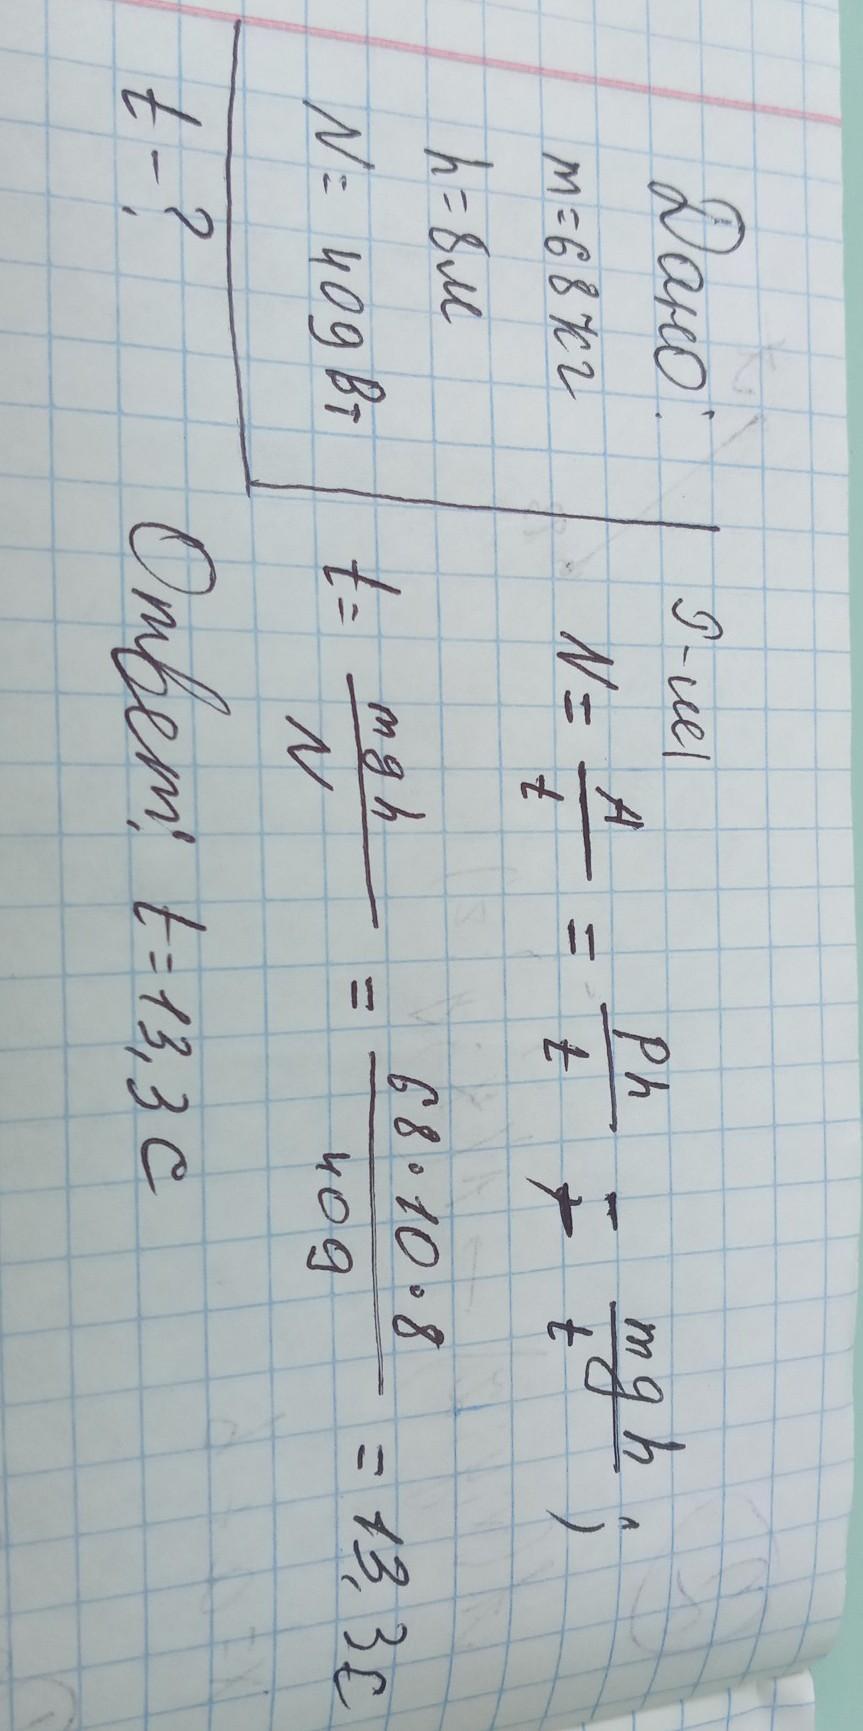 Дано:
m=68кг
h=8м
N= 409Вт
t-?
Р-ие
N = A/t = Ph/t = mgh/t ;
t= mgh/N = 68·10·8/409 = 13,3с
Ответ: t=13,3с